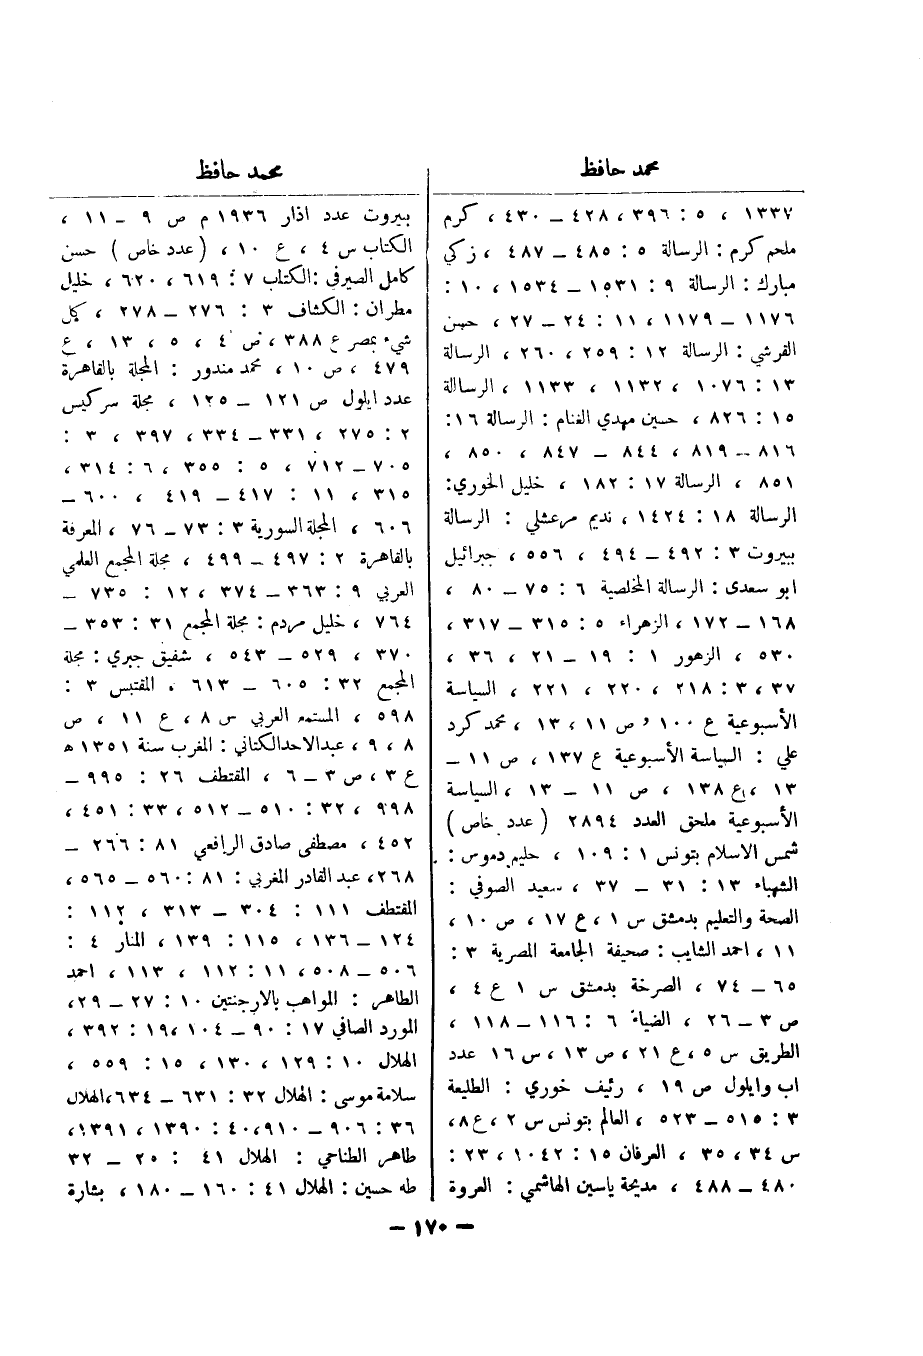 محمد حافظ
١٣٣٧ ، ٥ : ٣٩٦ ، ٤٢٨ ــ ٤٣٠ ، كرم
ملحم كرم : الرسالة ٥ : ٤٨٥ ــ ٤٨٧ ، زكي
مبارك : الرسالة ٩ : ١٥٣١ ــ ١٥٣٤ ، ١٠ :
١١٧٦ ــ ١١٧٩ ، ١١ : ٢٤ ــ ٢٧ ، حسن
القرشي : الرسالة ١٢ : ٢٥٩ ، ٢٦٠ ، الرسالة
١٣ : ١٠٧٦ ، ١١٣٢ ، ١١٣٣ ، الرسالة
١٥ : ٨٢٦ ، حسين مهدي الغنام : الرسالة ١٦ :
٨١٦ ــ ٨١٩ ، ٨٤٤ ــ ٨٤٧ ، ٨٥٠ ،
٨٥١ ، الرسالة ١٧ : ١٨٢ ، خليل الخوري :
الرسالة ١٨ : ١٤٢٤ ، نديم مرعشلي : الرسالة
ببيروت ٣ : ٤٩٢ ــ ٤٩٤ ، ٥٥٦ ، جبرائيل
ابو سعدى : الرسالة المخلصية ٦ : ٧٥ ــ ٨٠ ،
١٦٨ ــ ١٧٢ ، الزهراء ٥ : ٣١٥ ــ ٣١٧ ،
٥٣٠ ، الزهور ١ : ١٩ ــ ٢١ ، ٣٦ ،
٣٧ ، ٣ : ٢١٨ ، ٢٢٠ ، ٢٢١ ، السياسة
الأسبوعية ع ١٠٠ ، ص ١١ ، ١٣ ، محمد كرد
علي : السياسة الأسبوعية ع ١٣٧ ، ص ١١ ــ
١٣ ، ع ١٣٨ ، ص ١١ ــ ١٣ ، السياسة
الأسبوعية ملحق العدد ٢٨٩٤ ( عدد خاص )
شمس الاسلام بتونس ١ : ١٠٩ ، حليم دموس :
الشهباء ١٣ : ٣١ ــ ٣٧ ، سعيد الصوفي :
الصحة والتعليم بدمشق س ١ ، ع ١٧ ، ص ١٠ ،
١١ ، احمد الشايب : صحيفة الجامعة المصرية ٣ :
٦٥ ــ ٧٤ ، الصرخة بدمشق س ١ ع ٤ ،
ص ٣ ــ ٢٦ ، الضياء ٦ : ١١٦ ــ ١١٨ ،
الطريق س ٥ ، ع ٢١ ، ص ١٣ ، س ١٦ عدد
اب وايلول ص ١٩ ، رئيف خوري : الطليعة
٣ : ٥١٥ ــ ٥٢٣ ، العالم بتونس س ٢ ، ع ٨ ،
س ٣٤ ، ٣٥ ، العرفان ١٥ : ١٠٤٢ ، ٢٣ :
٤٨٠ ــ ٤٨٨ ، مديحة ياسين الهاشمي : العروة
محمد حافظ
بيروت عدد اذار ١٩٣٦ م ص ٩ ــ ١١ ،
الكتاب س ٤ ، ع ١٠ ، ( عدد خاص ) حسن
كامل الصيرفي : الكتاب ٧ : ٦١٩ ، ٦٢٠ ، خليل
مطران : الكشاف ٣ : ٢٧٦ ــ ٢٧٨ ، كل
شيء بمصر ع ٣٨٨ ، ص ٤ ، ٥ ، ١٣ ، ع
٤٧٩ ، ص ١٠ ، محمد مندور : المجلة بالقاهرة
عدد ايلول ص ١٢١ ــ ١٢٥ ، مجلة سركيس
٢ : ٢٧٥ ، ٣٣١ ــ ٣٣٤ ، ٣٩٧ ، ٣ :
٧٠٥ ــ ٧١٢ ، ٥ : ٣٥٥ ، ٦ : ٣١٤ ،
٣١٥ ، ١١ : ٤١٧ ــ ٤١٩ ، ٦٠٠ ــ
٦٠٦ ، المجلة السورية ٣ : ٧٣ ــ ٧٦ ، المعرفة
بالقاهرة ٢ : ٤٩٧ ــ ٤٩٩ ، مجلة المجمع العلمي
العربي ٩ : ٣٦٣ ــ ٣٧٤ ، ١٢ : ٧٣٥ ــ
٧٦٤ ، خليل مردم : مجلة المجمع ٣١ : ٣٥٣ ــ
٣٧٠ ، ٥٢٩ ــ ٥٤٣ ، شفيق جبري : مجلة
المجمع ٣٢ : ٦٠٥ ــ ٦١٣ ، المقتبس ٣ :
٥٩٨ ، المستمع العربي س ٨ ، ع ١١ ، ص
٨ ، ٩ ، عبدالاحد الكتاني : المغرب سنة ١٣٥١ ه
ع ٣ ، ص ٣ ــ ٦ ، المقتطف ٢٦ : ٩٩٥ ــ
٩٩٨ ، ٣٢ : ٥١٠ ــ ٥١٢ ، ٣٣ : ٤٥١ ،
٤٥٢ ، مصطفى صادق الرافعي ٨١ : ٢٦٦ ــ
٢٦٨ ، عبد القادر المغربي : ٨١ : ٥٦٠ ــ ٥٦٥ ،
المقتطف ١١١ : ٣٠٤ ــ ٣١٣ ، ١١٢ :
١٢٤ ــ ١٣٦ ، ١١٥ : ١٣٩ ، المنار ٤ :
٥٠٦ ــ ٥٠٨ ، ١١ : ١١٢ ، ١١٣ ، احمد
الطاهر : المواهب بالارجنتين ١٠ : ٢٧ ــ ٢٩ ،
المورد الصافي ١٧ : ٩٠ ــ ١٠٤ ، ١٩ : ٣٩٢ ،
الهلال ١٠ : ١٢٩ ، ١٣٠ ، ١٥ : ٥٥٩ ،
سلامة موسى : الهلال ٣٢ : ٦٣١ ــ ٦٣٤ ، الهلال
٣٦ : ٩٠٦ ــ ٩١٠ ، ٤٠ : ١٣٩٠ ، ١٣٩١ ،
طاهر الطناحي : الهلال ٤١ : ٢٥ ــ ٣٢
طه حسين : الهلال ٤١ : ١٦٠ ــ ١٨٠ ، بشارة
ــ ١٧٠ ــ